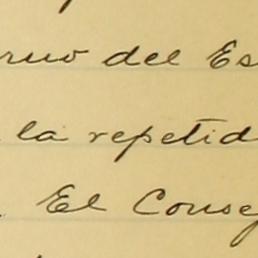 del Es
la repetid
El Conse